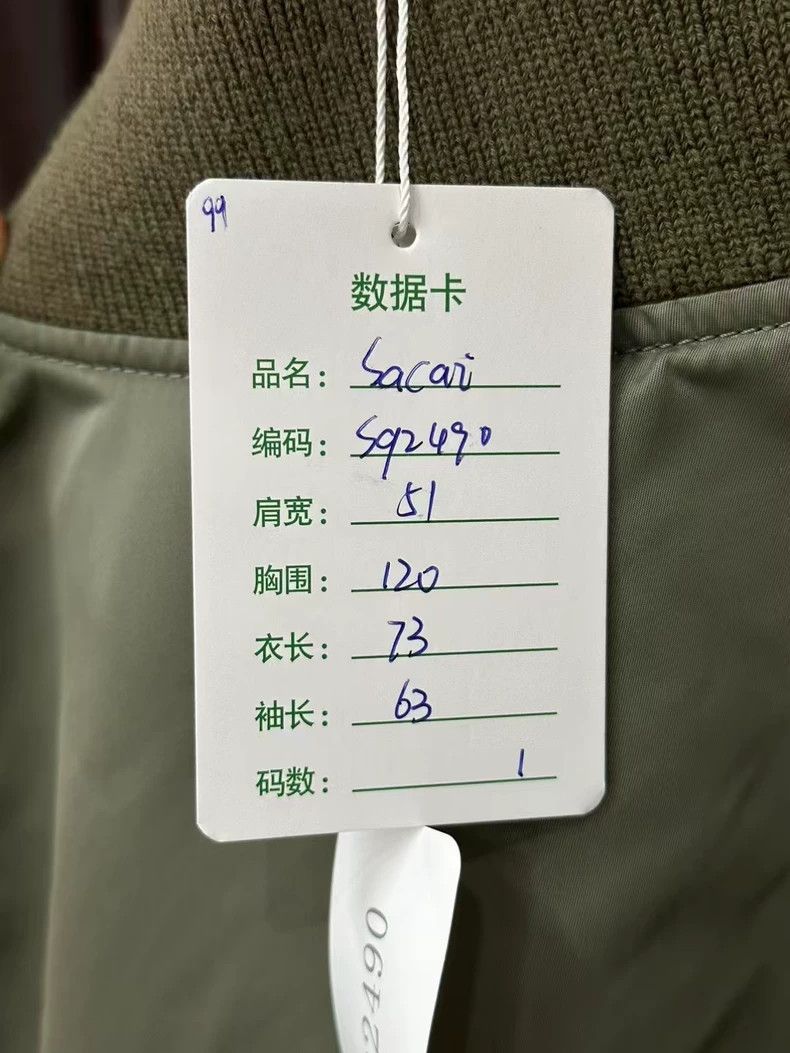 99
数据卡
品名: Sacari
编码: Sq2490
肩宽: 51
胸围: 120
衣长: 73
袖长: 63
码数: 1
2490